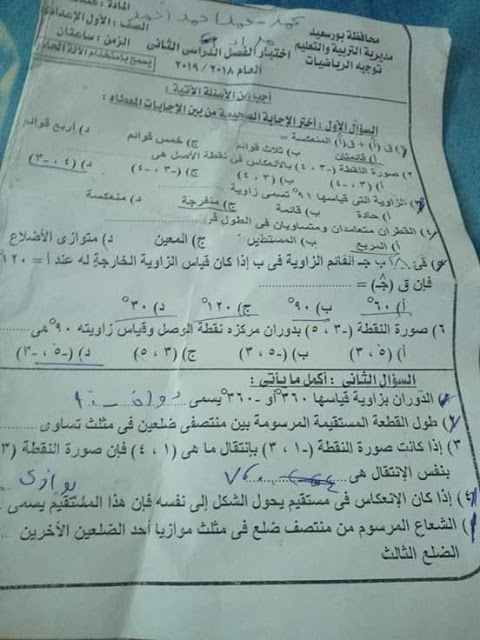 محافظة بورسعيد
مديرية التربية والتعليم
توجيه الرياضيات
محمد محمد احمد احمد
اختبار الفصل الدراسى الثانى
العام ٢٠١٨ / ٢٠١٩
المادة :
الصف : الأول الإعدادى
الزمن : ساعتان
يسمح باستخدام الآلة
أجب عن الأسئلة الآتية :
السؤال الأول : أختر الإجابة الصحيحة من بين الإجابات المعطاه :
١) ق (أ) + ق (أ) المنعكسة =
أ) قائمتان ب) ثلاث قوائم ج) خمس قوائم د) أربع قوائم
٢) صورة النقطة (-٣ ، ٤) بالانعكاس فى نقطة الأصل هى
أ) (٣ ، -٤) ب) (٣ ، ٤) ج) (-٣ ، -٤) د) (٤ ، -٣)
٣) الزاوية التى قياسها ٩١° تسمى زاوية
أ) حادة ب) قائمة ج) منفرجة د) منعكسة
٤) القطران متعامدان ومتساويان فى الطول فى
أ) المربع ب) المستطيل ج) المعين د) متوازى الأضلاع
٥) فى △ أ ب جـ القائم الزاوية فى ب إذا كان قياس الزاوية الخارجة له عند أ = ١٢٠
فإن ق (جـ) =
أ) ٦٠° ب) ٩٠° ج) ١٢٠° د) ٣٠°
٦) صورة النقطة (-٣ ، ٥) بدوران مركزه نقطة الأصل وقياس زاويته ٩٠° هى
أ) (٥ ، ٣) ب) (-٥ ، ٣) ج) (٣ ، ٥) د) (-٥ ، -٣)
السؤال الثانى : أكمل ما يأتى :
١) الدوران بزاوية قياسها ٣٦٠° أو -٣٦٠° يسمى
٢) طول القطعة المستقيمة المرسومة بين منتصفى ضلعين فى مثلث تساوى
٣) إذا كانت صورة النقطة (-١ ، ٣) بإنتقال ما هى (١ ، ٤) فإن صورة النقطة (٣
بنفس الإنتقال هى
٤) إذا كان الإنعكاس فى مستقيم يحول الشكل إلى نفسه فإن هذا المستقيم يسمى
يوازى
الشعاع المرسوم من منتصف ضلع فى مثلث موازيا أحد الضلعين الآخرين
الضلع الثالث